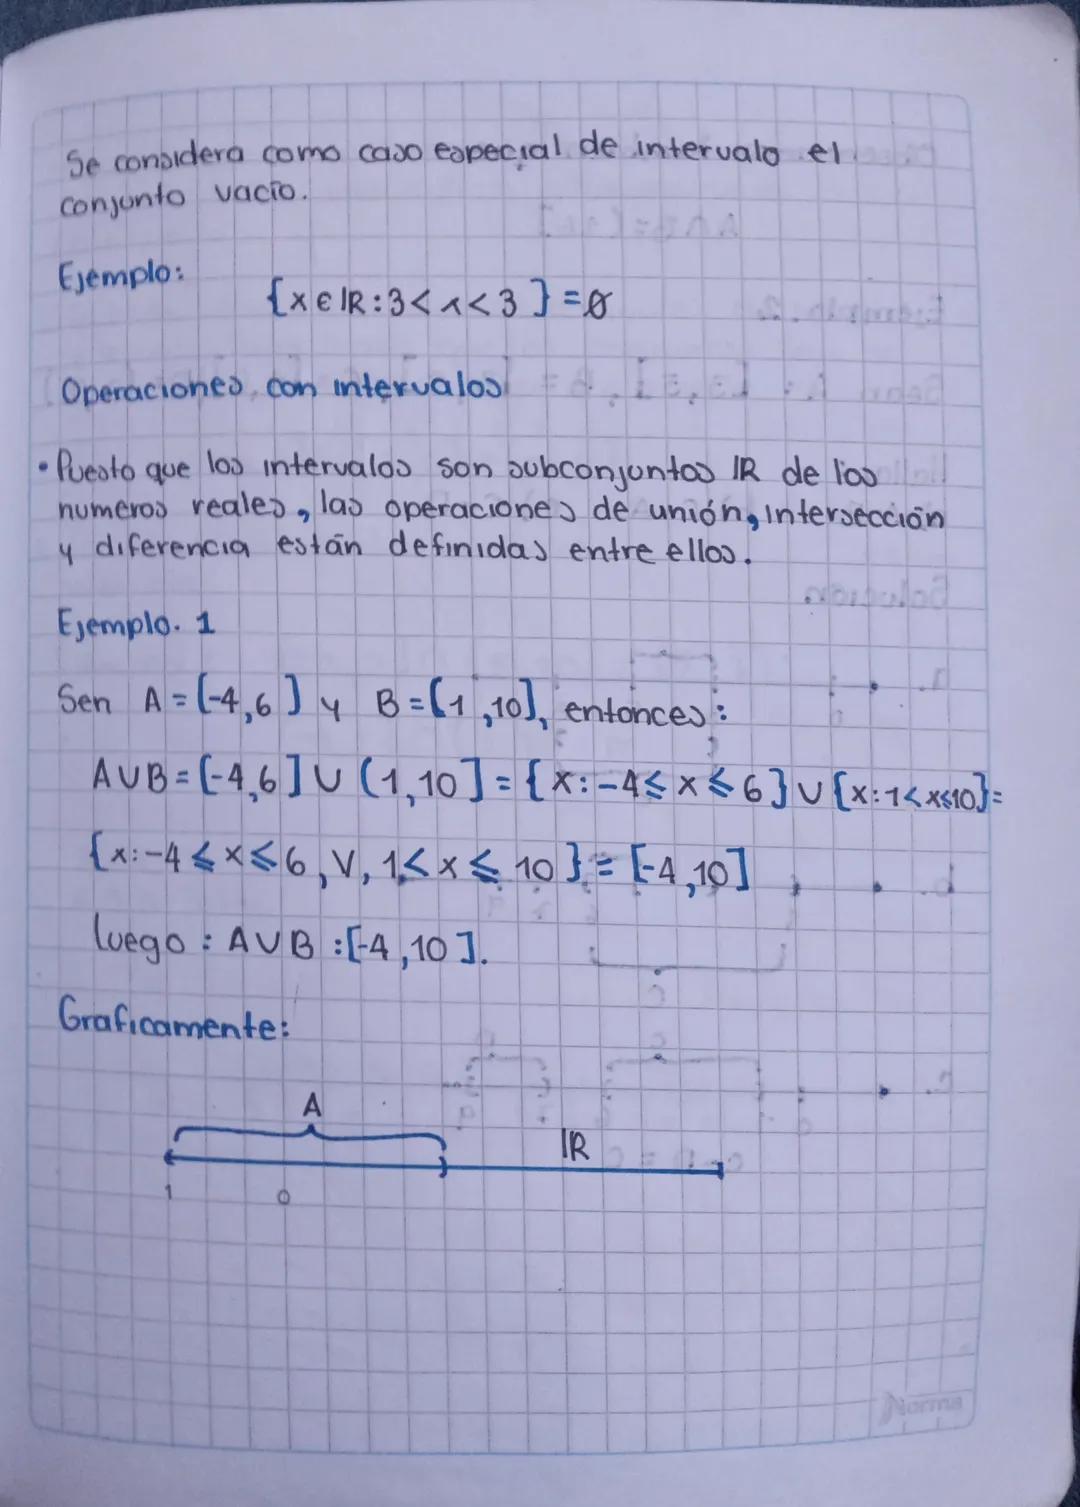 Se considera como caso especial de intervalo el
conjunto vacío.
Ejemplo:
{x ∈ IR : 3 < x < 3 } = ∅
Operaciones con intervalos
• Puesto que los intervalos son subconjuntos IR de los
numeros reales, las operaciones de unión, intersección
y diferencia están definidas entre ellos.
Ejemplo. 1
Sen A = [-4,6] y B = (1,10], entonces:
A∪B = [-4,6] ∪ (1,10] = {x: -4 ≤ x ≤ 6} ∪ {x: 1 < x ≤ 10} =
{x: -4 ≤ x ≤ 6, V, 1 < x ≤ 10} = [-4,10]
luego : A∪B :[-4,10].
Graficamente:
A
IR
1 0
Norma